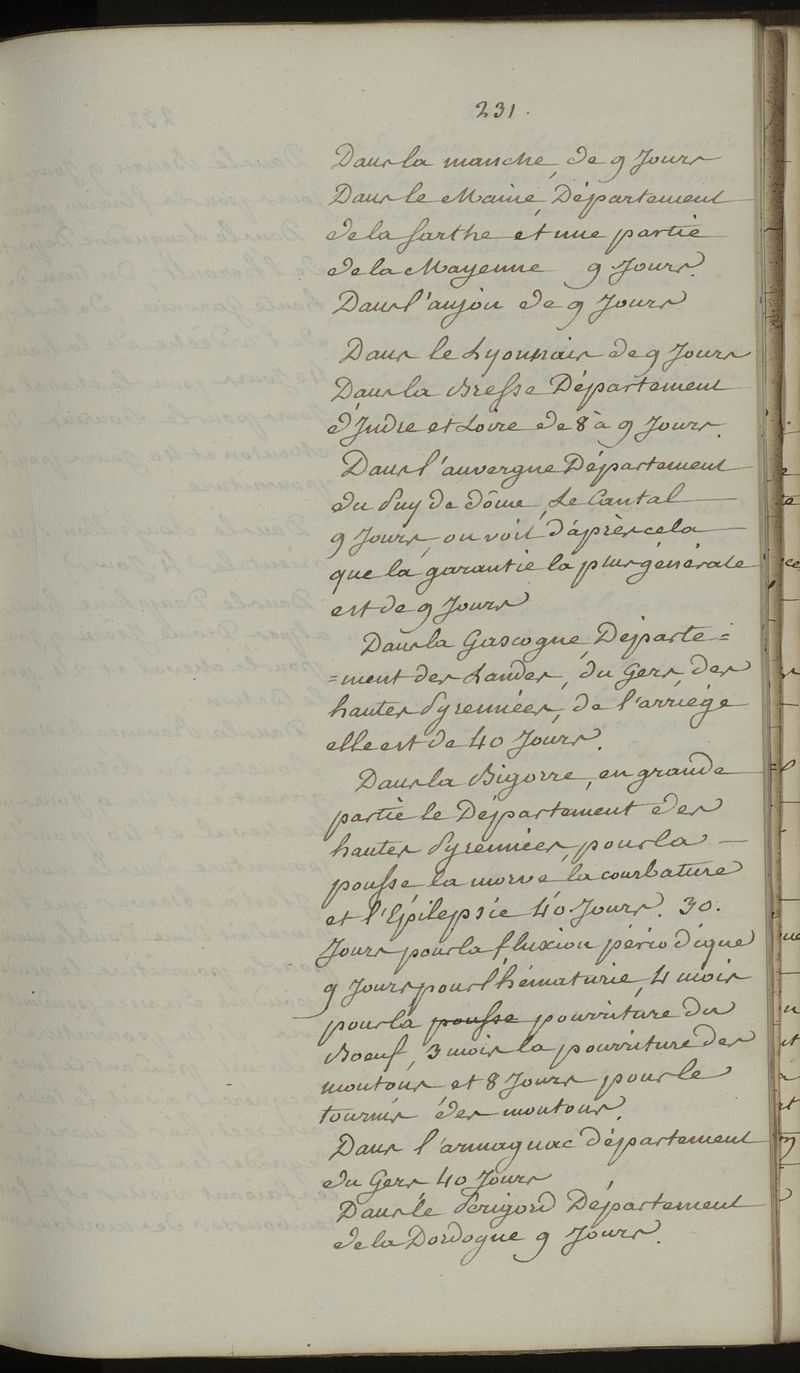 231.
Dans la manche, de 9 Jours
Dans le Maine, Département
de la Sarthe et une partie
de la Mayenne 9 Jours.
Dans l'anjou de 9 Jours
Dans le Lyonnais de 9 Jours
Dans la Bresse Département
d'Indre et Loire de 8 à 9 Jours.
Dans l'auvergne Département
du Puy de dôme, Le Cantal
9 Jours, on voit d'après cela
que la garantie la plus générale
est de 9 Jours
Dans la Gascogne, Départe=
=ment des Landes, du Gers, des
hautes Pyrennées, de l'arriège
elle est de 40 Jours.
Dans la Bigorre, en grande
partie le Département des
hautes Pyrennées, pour la
pousse la morve, la courbature
et l'Épilepsie 40 Jours. 30.
Jours pour la fluxion périodique
9 Jours pour l'hématurie, 4 mois
pour la pousse pourriture du
Boeuf, 3 mois la pourriture des
moutons et 8 Jours pour le
tournis des moutons.
Dans l'armagnac département
du Gers 40 Jours
Dans le Perigord Département
de la Dordogne 9 Jours.